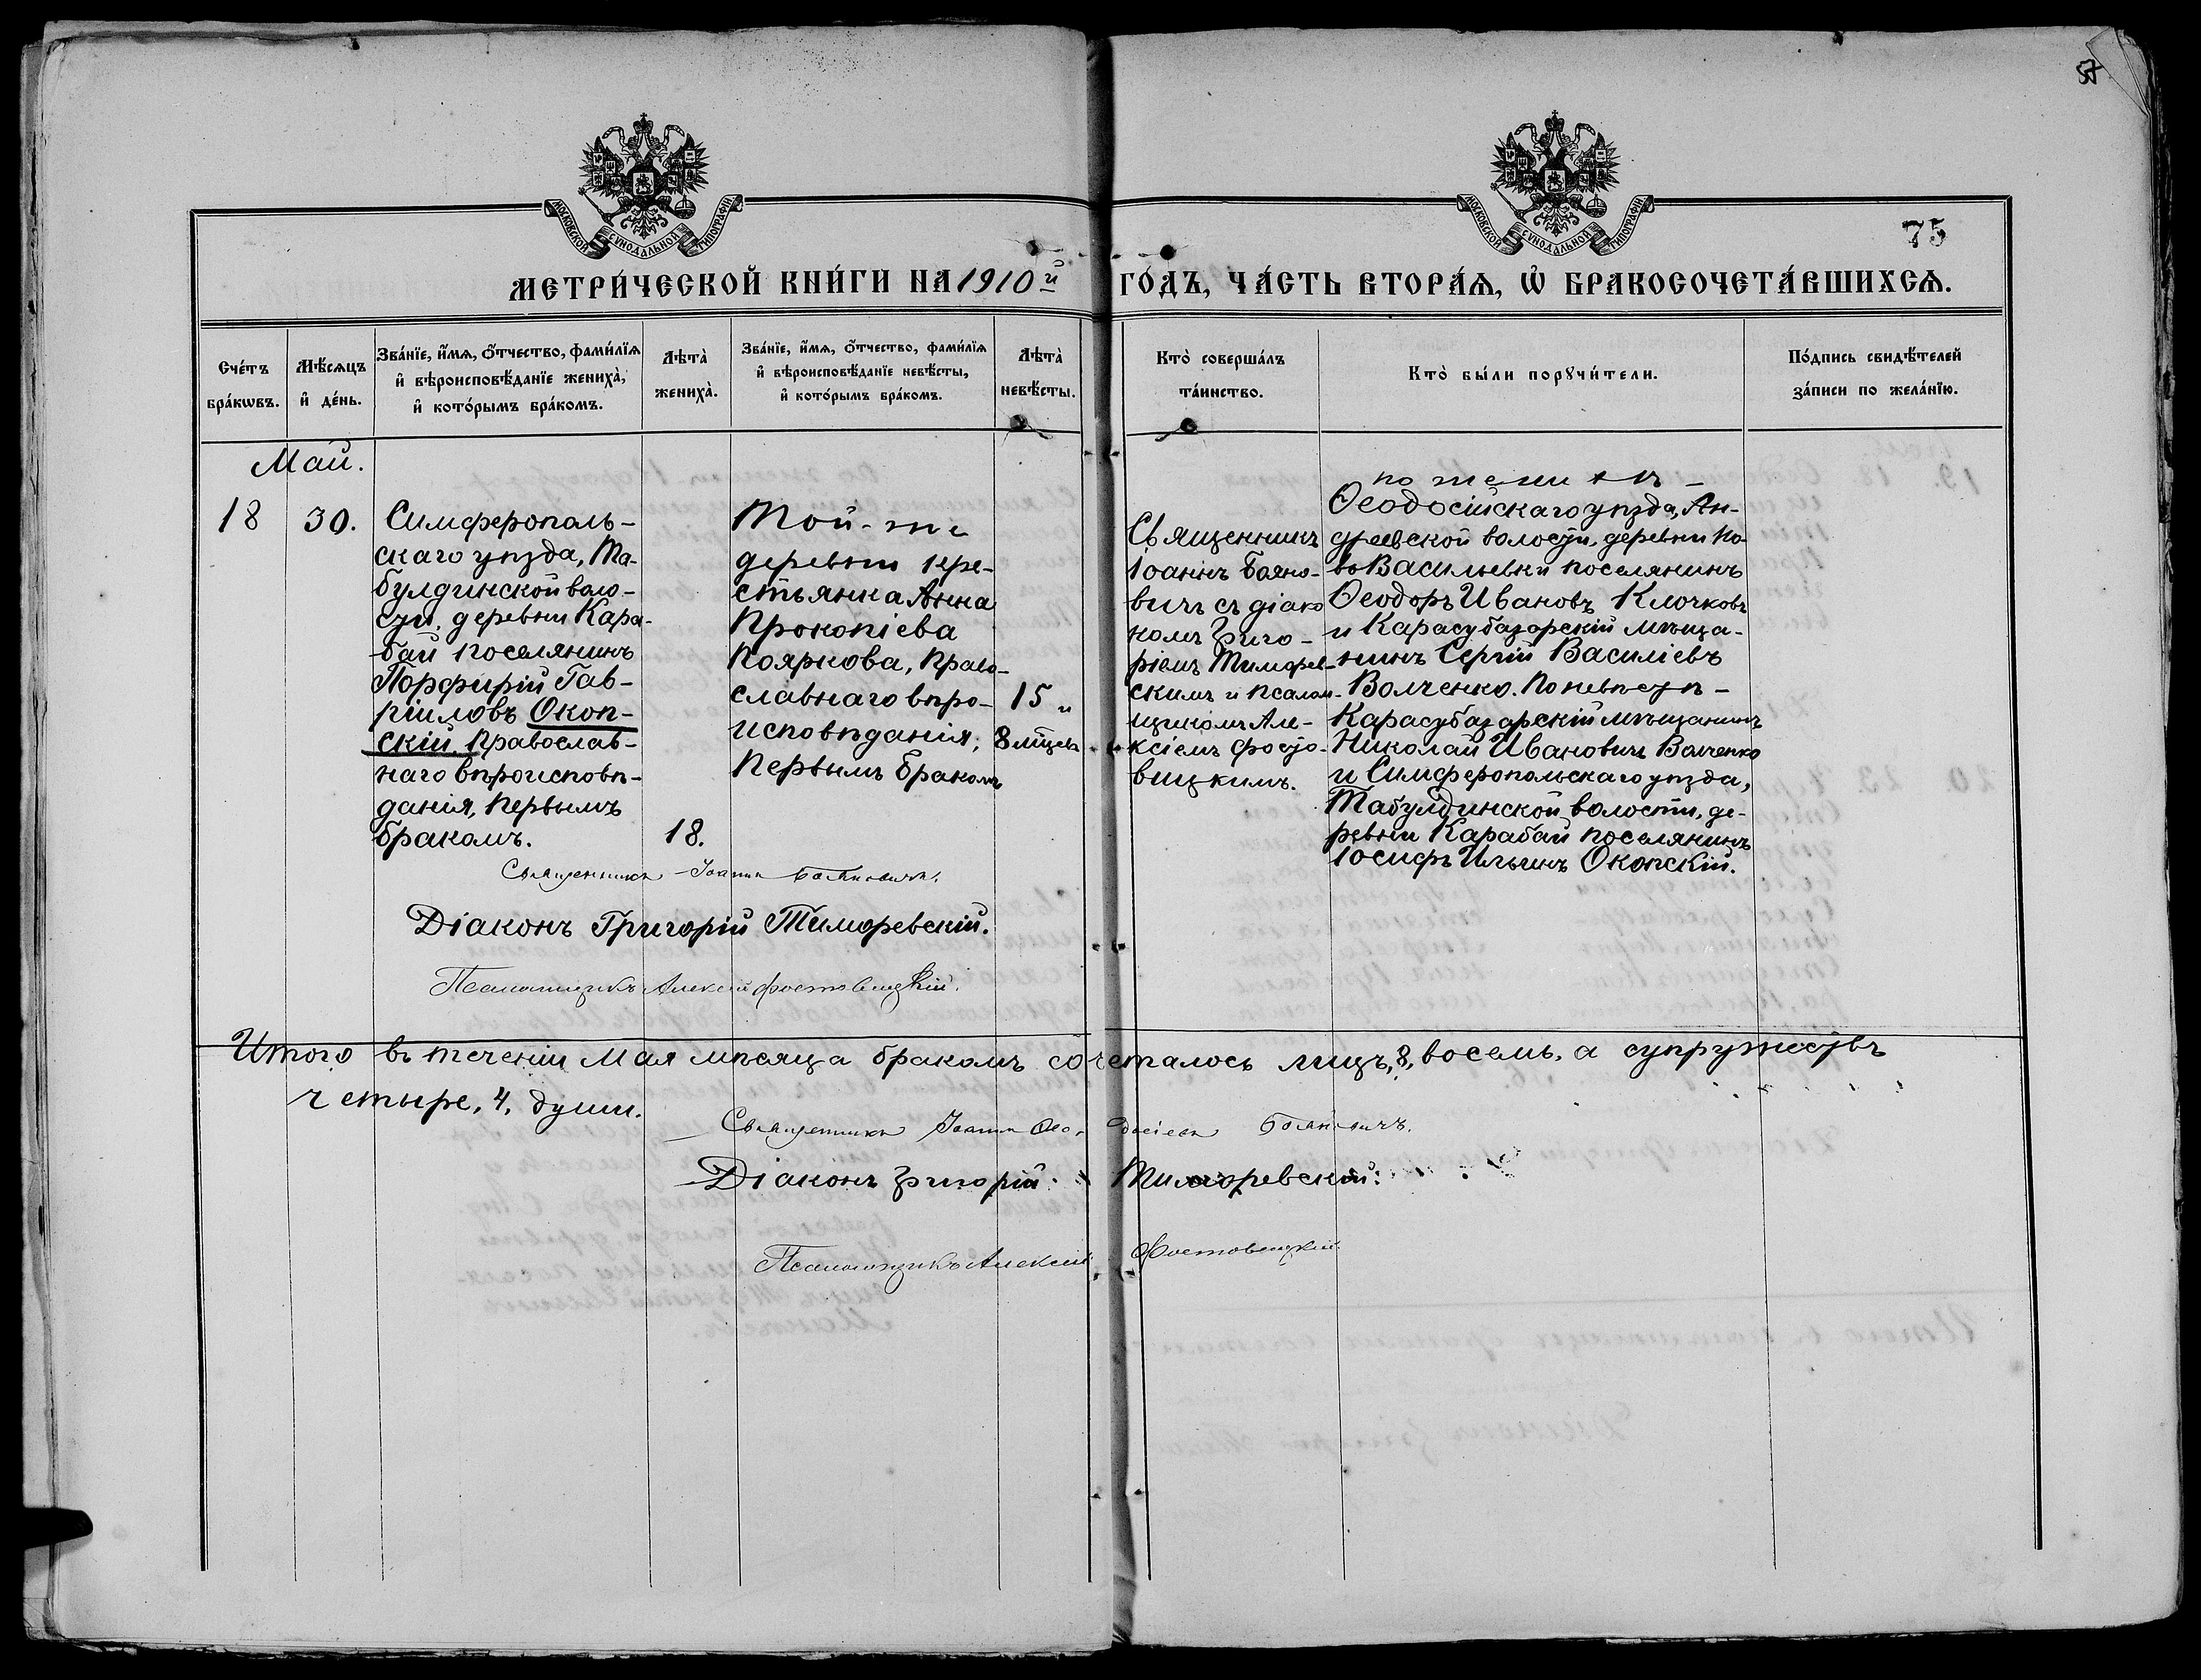 57
МОСКОВСКОЙ СѴНОДАЛЬНОЙ ТИПОГРАФІИ
МОСКОВСКОЙ СѴНОДАЛЬНОЙ ТИПОГРАФІИ
75
МЕТРИ́ЧЕСКОЙ КНИ́ГИ НА 1910й ГО́ДЪ, ЧА́СТЬ ВТОРА́Ѧ, Ѽ БРАКОСОЧЕТА́ВШИХСѦ.
Сче́тъ бра́кѡвъ.
Мѣ́сѧцъ и҆ де́нь.
Зва́нїе, и҆́мѧ, ѻ҆́тчество, фами́лїѧ и҆ вѣроисповѣ́данїе жениха̀, и҆ кото́рымъ бра́комъ.
Лѣта̀ жениха̀.
Зва́нїе, и҆́мѧ, ѻ҆́тчество, фами́лїѧ и҆ вѣроисповѣ́данїе невѣ́сты, и҆ кото́рымъ бра́комъ.
Лѣта̀ невѣ́сты.
Кто̀ соверша́лъ та́инство.
Кто̀ бы́ли порꙋчи́тели.
По́дпись свидѣ́телей за́писи по жела́нїю.
Май.
18
30.
Симферополь-
скаго уѣзда, Та-
булдинской воло-
сти, деревни Кара-
бай поселянинъ
Порфирій Гав-
ріиловъ Окоп-
скій, Православ-
наго вѣроисповѣ-
данія, первымъ
бракомъ.
18.
Той-же
деревни кре-
стьянка Анна
Прокопіева
Пояркова, Право-
славнаго вѣро-
исповѣданія,
Первымъ бракомъ
15 и
8 мѣсяцевъ
Священникъ
Іоаннъ Бояно-
вичъ съ діако
номъ Григо-
ріемъ Тимофев-
скимъ и псалом-
щикомъ Але-
ксіемъ Фосто-
вицкимъ.
по женихѣ -
Ѳеодосійскаго уѣзда, Ан-
дреевской волости, деревни Но-
во Васильевки поселянинъ
Ѳеодоръ Ивановъ Клочковъ
и Карасубазарскій мѣща-
нинъ Сергій Василіевъ
Волченко. По невѣстѣ -
Карасубазарскій мѣщанинъ
Николай Ивановичъ Волченко
и Симферопольскаго уѣзда,
Табулдинской волости, де-
ревни Карабай поселянинъ
Іосифъ Ильинъ Окопскій.
Священникъ Іоаннъ Бояновичъ.
Діаконъ Григорій Тимофевскій.
Псаломщикъ Алексій Фостовицкій.
Итого въ теченіи Мая мѣсяца бракомъ сочеталось лицъ, 8, восемь, а супружествъ
четыре, 4, души.
Священникъ Іоаннъ Ѳеодосіевъ Бояновичъ.
Діаконъ Григорій Тимофревскій.
Псаломщикъ Алексій Фостовицкій